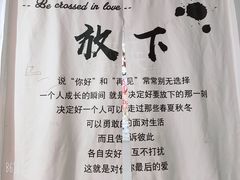 -- Be crossed in love --
放下
说 "你好" 和 "再见" 常常别无选择
一个人成长的瞬间 就是决定要放下的那一刻
决定好一个人可以走过那些春夏秋冬
可以勇敢的面对生活
而且告诉彼此
各自安好 互不打扰
这就是对你最后的爱